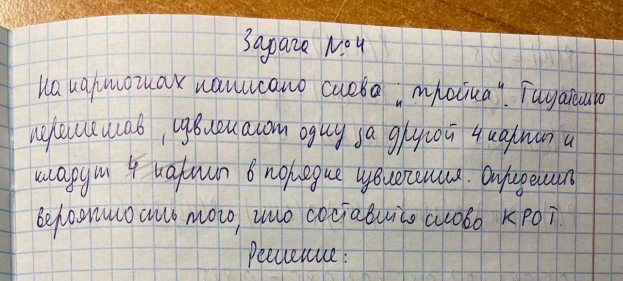 Задача №4
На карточках написано слова „тройка". Тщательно
перемешав, извлекают одну за другой 4 карты и
кладут 4 карты в порядке извлечения. Определить
вероятность того, что составится слово КРОТ.
Решение: